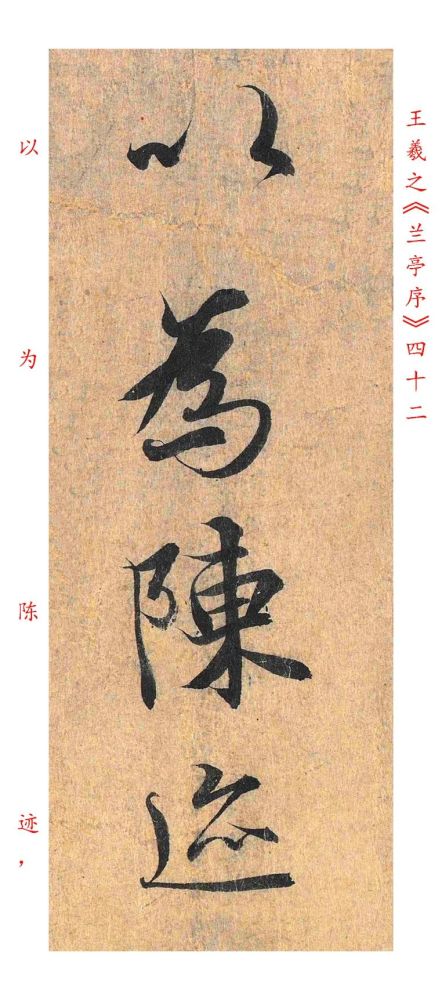 王羲之《兰亭序》四十二
以為陳迹
以为陈迹，